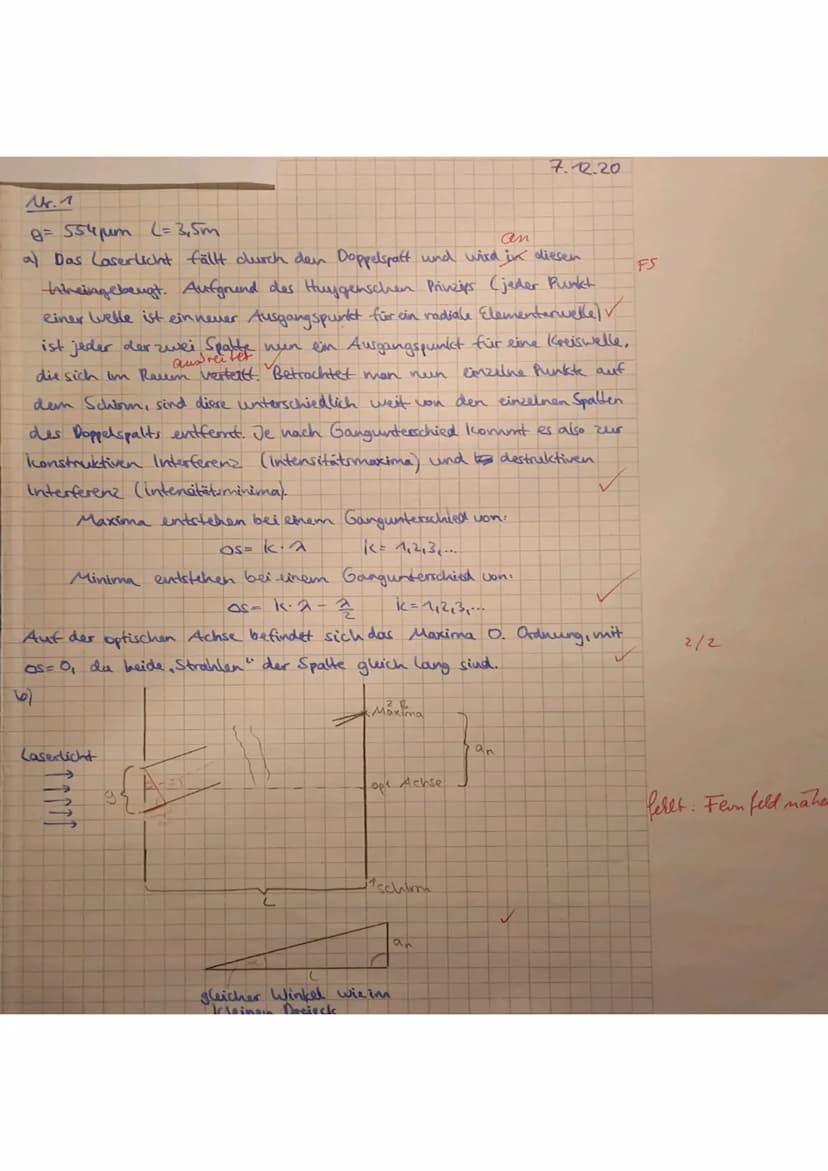 7.12.20
Nr. 1
g= 554µm L= 3,5m
an
a) Das Laserlicht fällt durch den Doppelspalt und wird in diesen
FS
hineingebeugt. Aufgrund des Huygenschen Prinzips (jeder Punkt
einer Welle ist ein neuer Ausgangspunkt für ein radiale Elementarwelle) ✓
ist jeder der zwei Spalte nun ein Ausgangspunkt für eine Kreiswelle,
ausbreitet
die sich im Raum verteilt. ✓ Betrachtet man nun einzelne Punkte auf
dem Schirm, sind diese unterschiedlich weit von den einzelnen Spalten
des Doppelspalts entfernt. Je nach Gangunterschied kommt es also zur
konstruktiven Interferenz (Intensitätsmaxima) und destruktiven
Interferenz (intensitätsminima). ✓
Maxima entstehen bei einem Gangunterschied von:
δs= k·λ k= 1,2,3,...
Minima entstehen bei einem Gangunterschied von:
δs= k·λ - λ/2 k=1,2,3,... ✓
Auf der optischen Achse befindet sich das Maxima 0. Ordnung, mit
2/2
δs=0, da beide „Strahlen" der Spalte gleich lang sind. ✓
b)
Maxima
Laserlicht
an
g
opt Achse
fehlt: Fernfeld
Schirm
L
✓
an
L
gleicher Winkel wie im
kleinen Dreieck